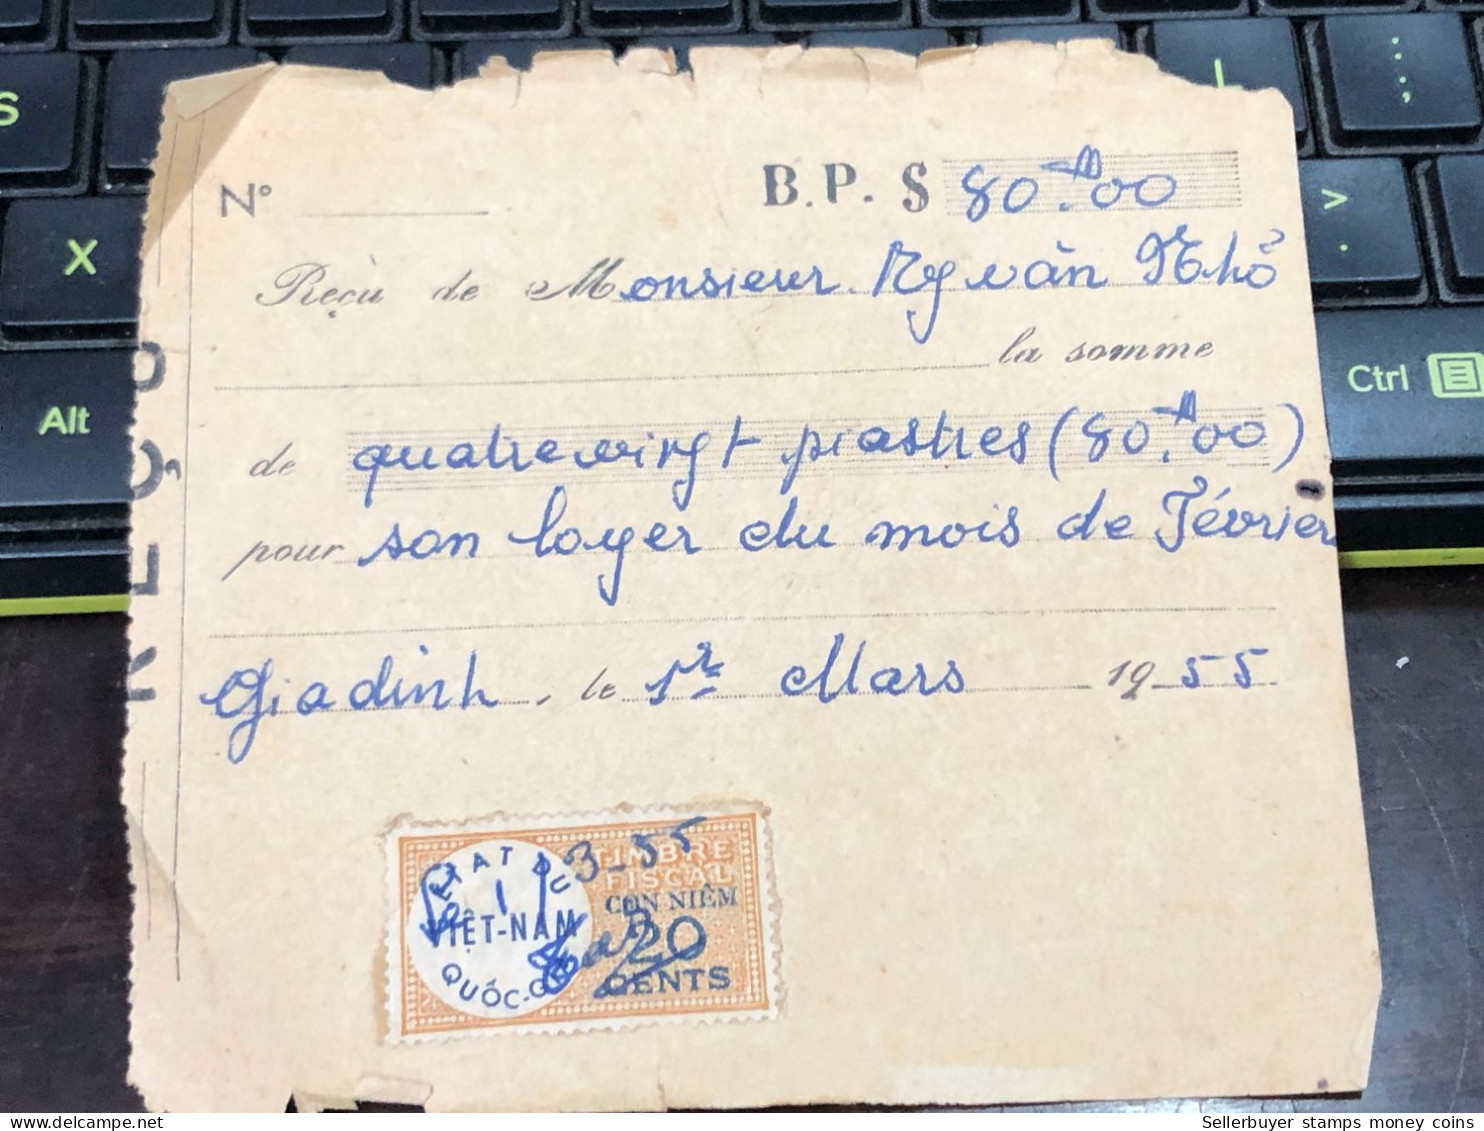 N° B.P. $ 80.$00
Reçu de Monsieur Ng văn Nhỏ
la somme
de quatre vingt piastres (80.$00)
pour son loyer du mois de Février
Giadinh, le 1er Mars 1955
REÇU
ETAT DU
VIÊT-NAM
QUỐC-GIA
TIMBRE
FISCAL
CON NIÊM
20
CENTS
1 3-55
S
X
Alt
L
;
:
>
.
Ctrl
Sellerbuyer stamps money coins